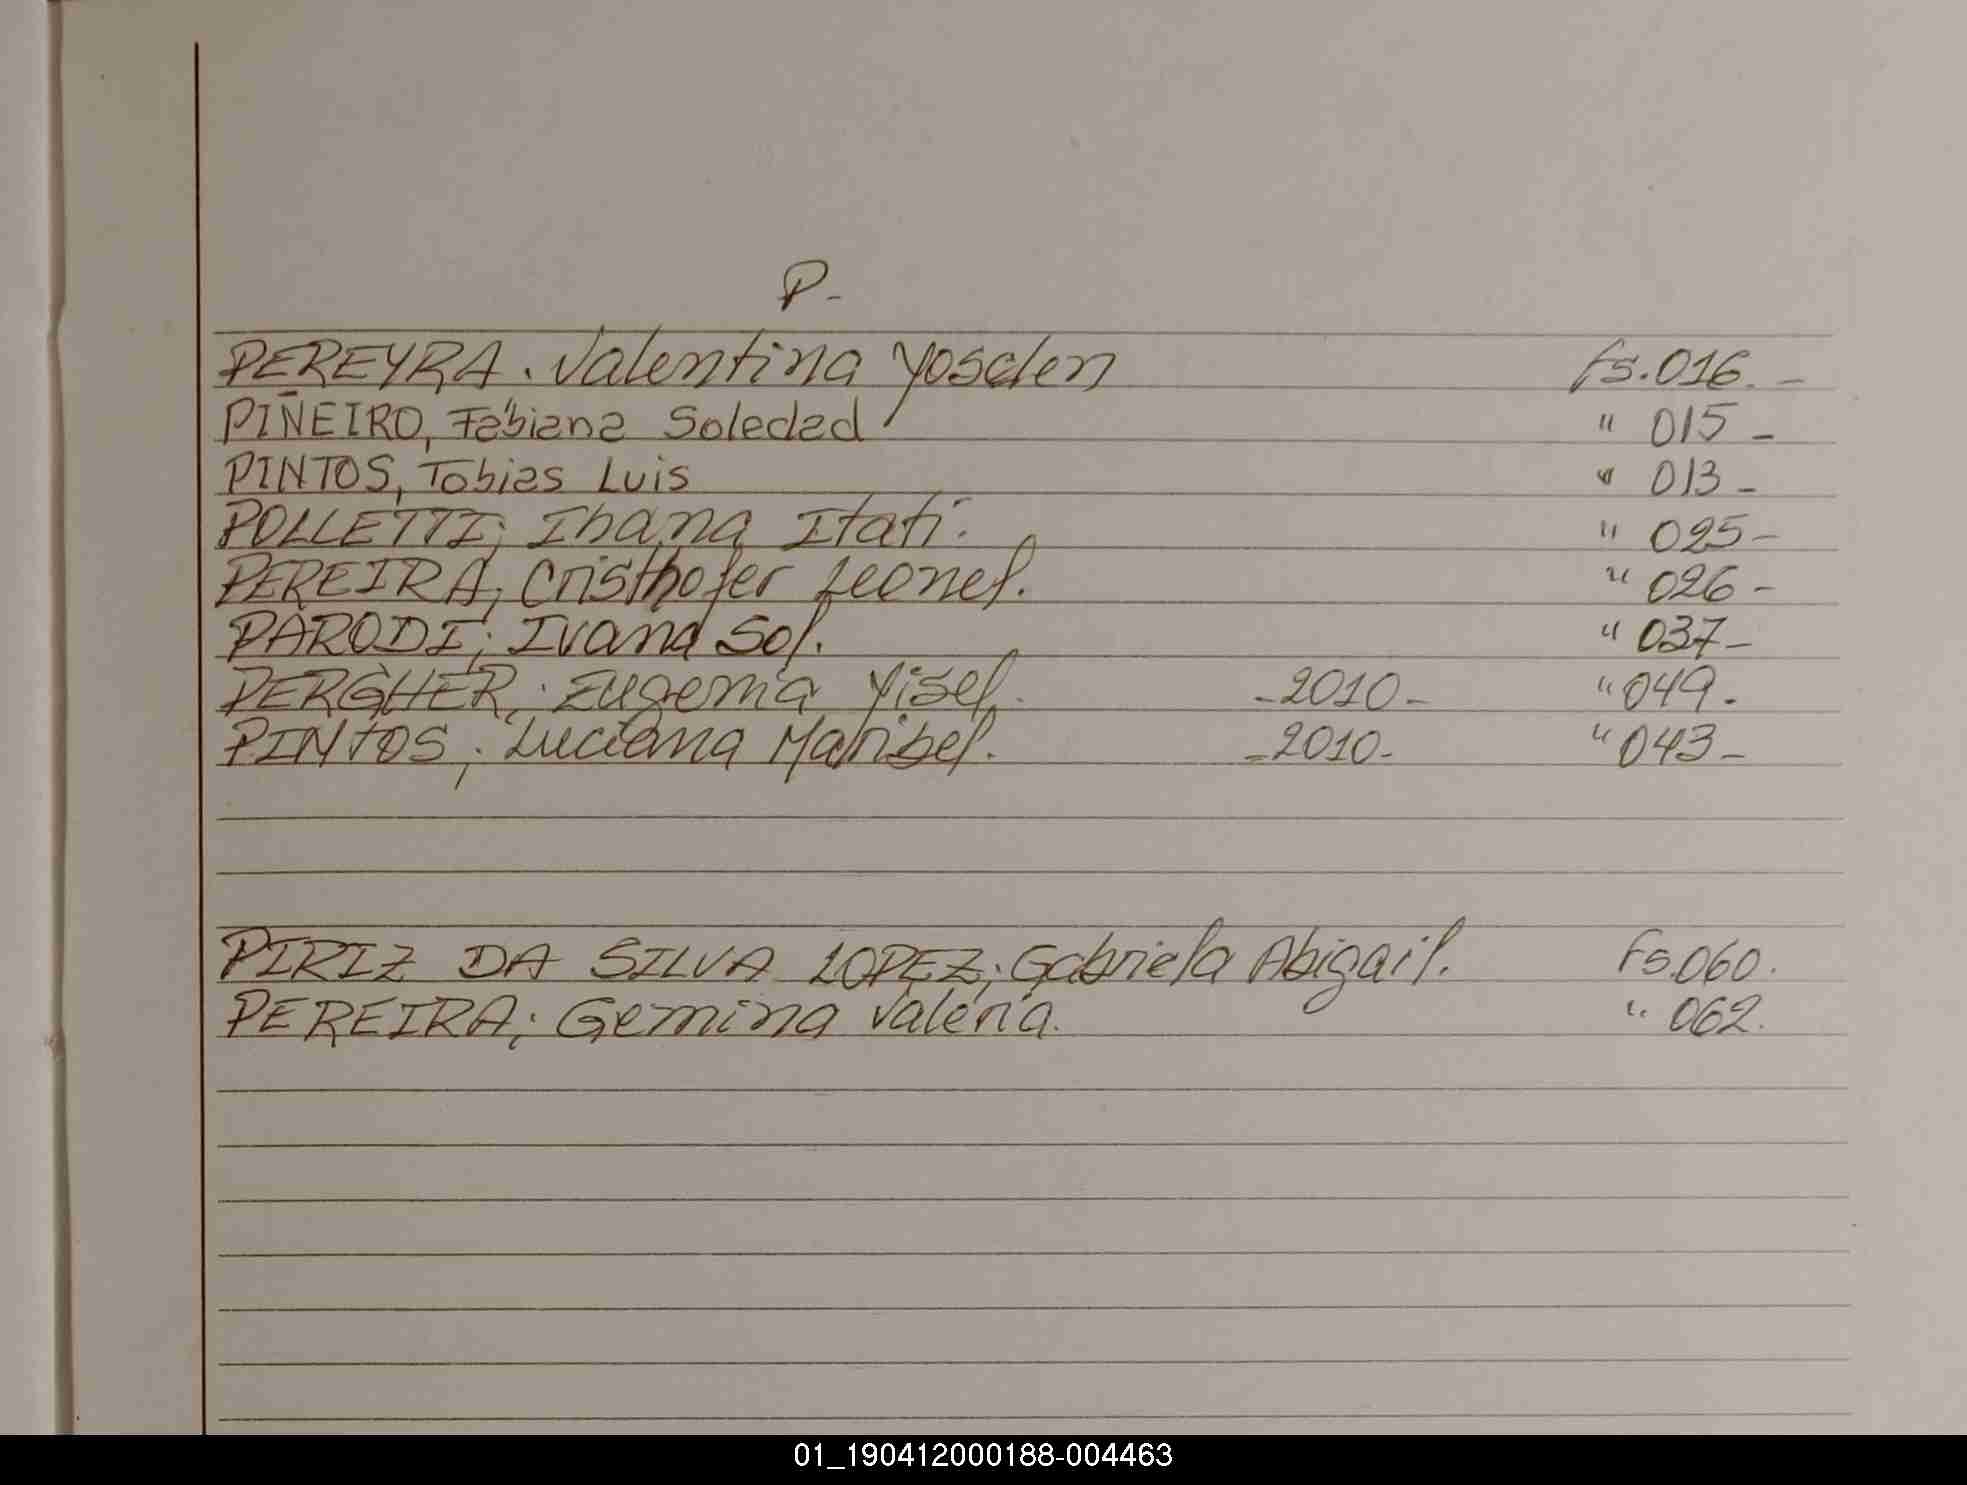 P-
PEREYRA. Valentina Yosclen fs. 016. -
PIÑEIRO, Fabiana Soledad " 015 -
PINTOS, Tobias Luis " 013 -
POLLETTI; Ibana Itatí. " 025-
PEREIRA, Cristhofer Leonel. " 026-
PARODI; Ivana Sol. " 037-
PERGHER, Eugenia Yisel. -2010- " 049-
PINTOS; Luciana Maribel. -2010- " 043-
PIRIZ DA SILVA LOPEZ; Gabriela Abigail. Fs. 060.
PEREIRA; Gemina Valeria. " 062.
01_190412000188-004463